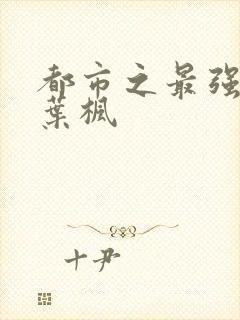 都市之最强
葉楓
十尹